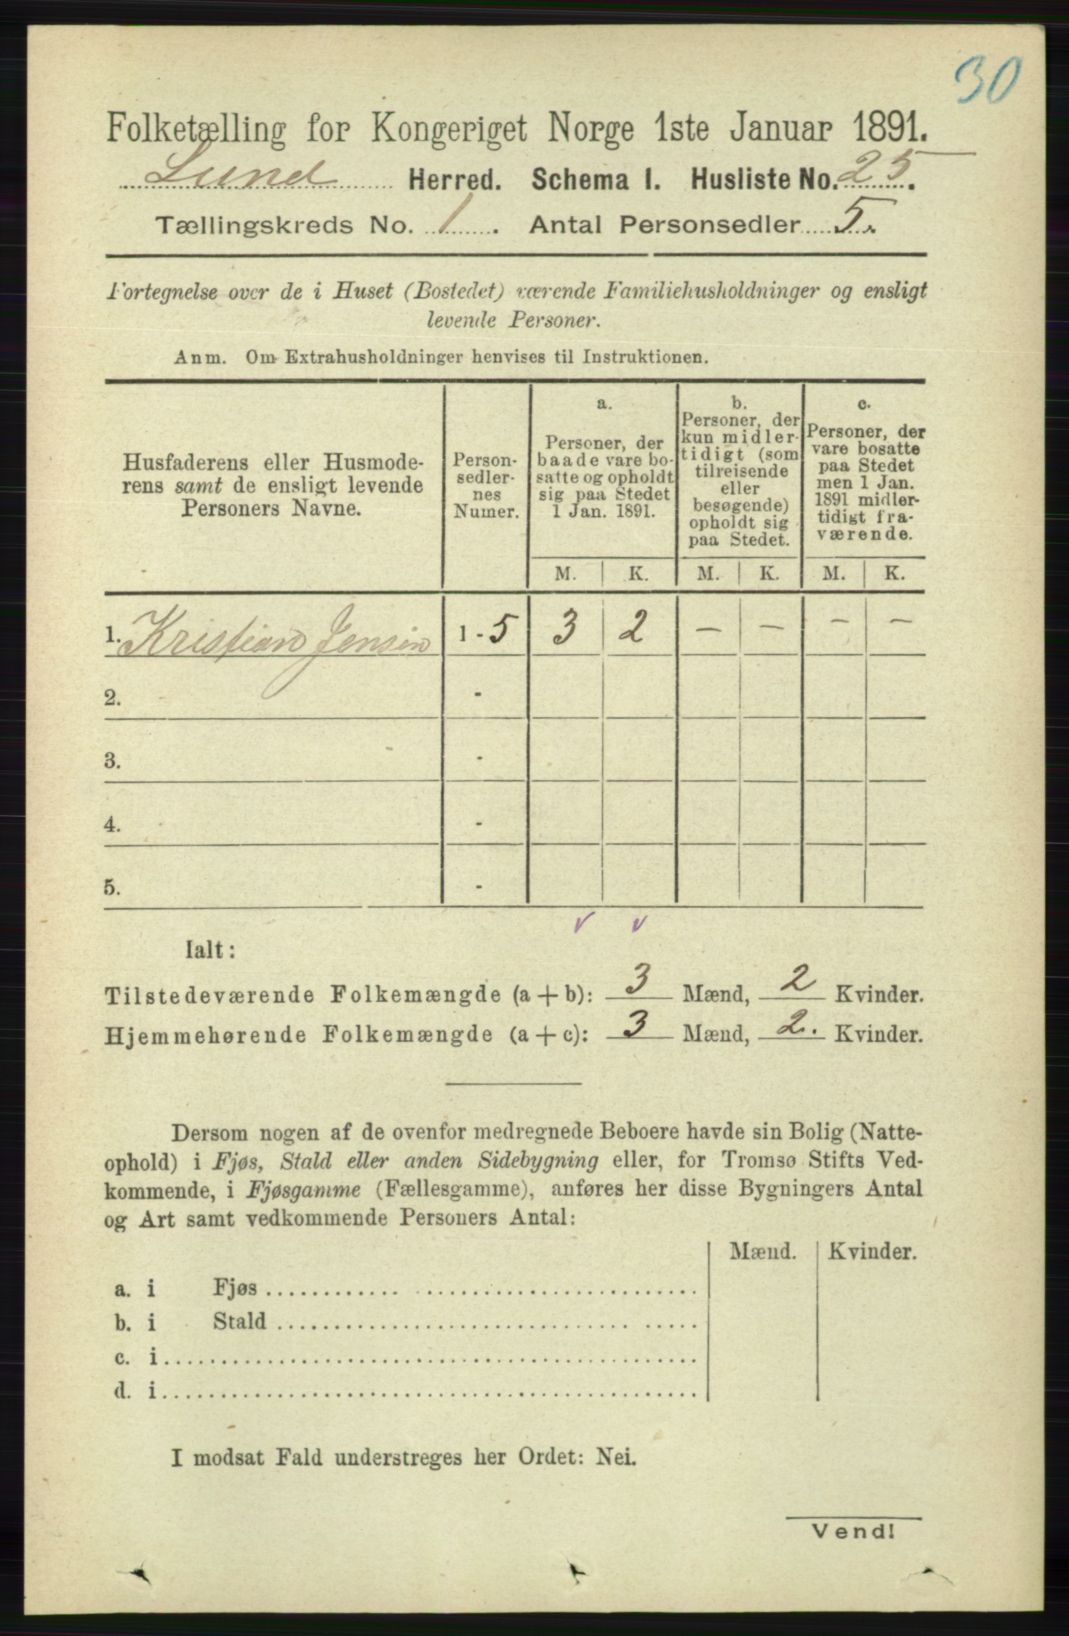 30
Folketælling for Kongeriget Norge 1ste Januar 1891.
Lund Herred. Schema I. Husliste No. 25.
Tællingskreds No. 1. Antal Personsedler 5.
Fortegnelse over de i Huset (Bostedet) værende Familiehusholdninger og ensligt
levende Personer.
Anm. Om Extrahusholdninger henvises til Instruktionen.
Husfaderens eller Husmode-
rens samt de ensligt levende
Personers Navne.
Person-
sedler-
nes
Numer.
a.
Personer, der
baade vare bo-
satte og opholdt
sig paa Stedet
1 Jan. 1891.
b.
Personer, der
kun midler-
tidigt (som
tilreisende
eller
besøgende)
opholdt sig
paa Stedet.
c.
Personer, der
vare bosatte
paa Stedet
men 1 Jan.
1891 midler-
tidigt fra-
værende.
M. K. M. K. M. K.
1. Kristian Jensen 1 - 5 3 2 — — — —
2. -
3. -
4. -
5. -
Ialt:
Tilstedeværende Folkemængde (a + b): 3 Mænd, 2 Kvinder.
Hjemmehørende Folkemængde (a + c): 3 Mænd, 2. Kvinder.
Dersom nogen af de ovenfor medregnede Beboere havde sin Bolig (Natte-
ophold) i Fjøs, Stald eller anden Sidebygning eller, for Tromsø Stifts Ved-
kommende, i Fjøsgamme (Fællesgamme), anføres her disse Bygningers Antal
og Art samt vedkommende Personers Antal:
Mænd. Kvinder.
a. i Fjøs
b. i Stald
c. i
d. i
I modsat Fald understreges her Ordet: Nei.
Vend!